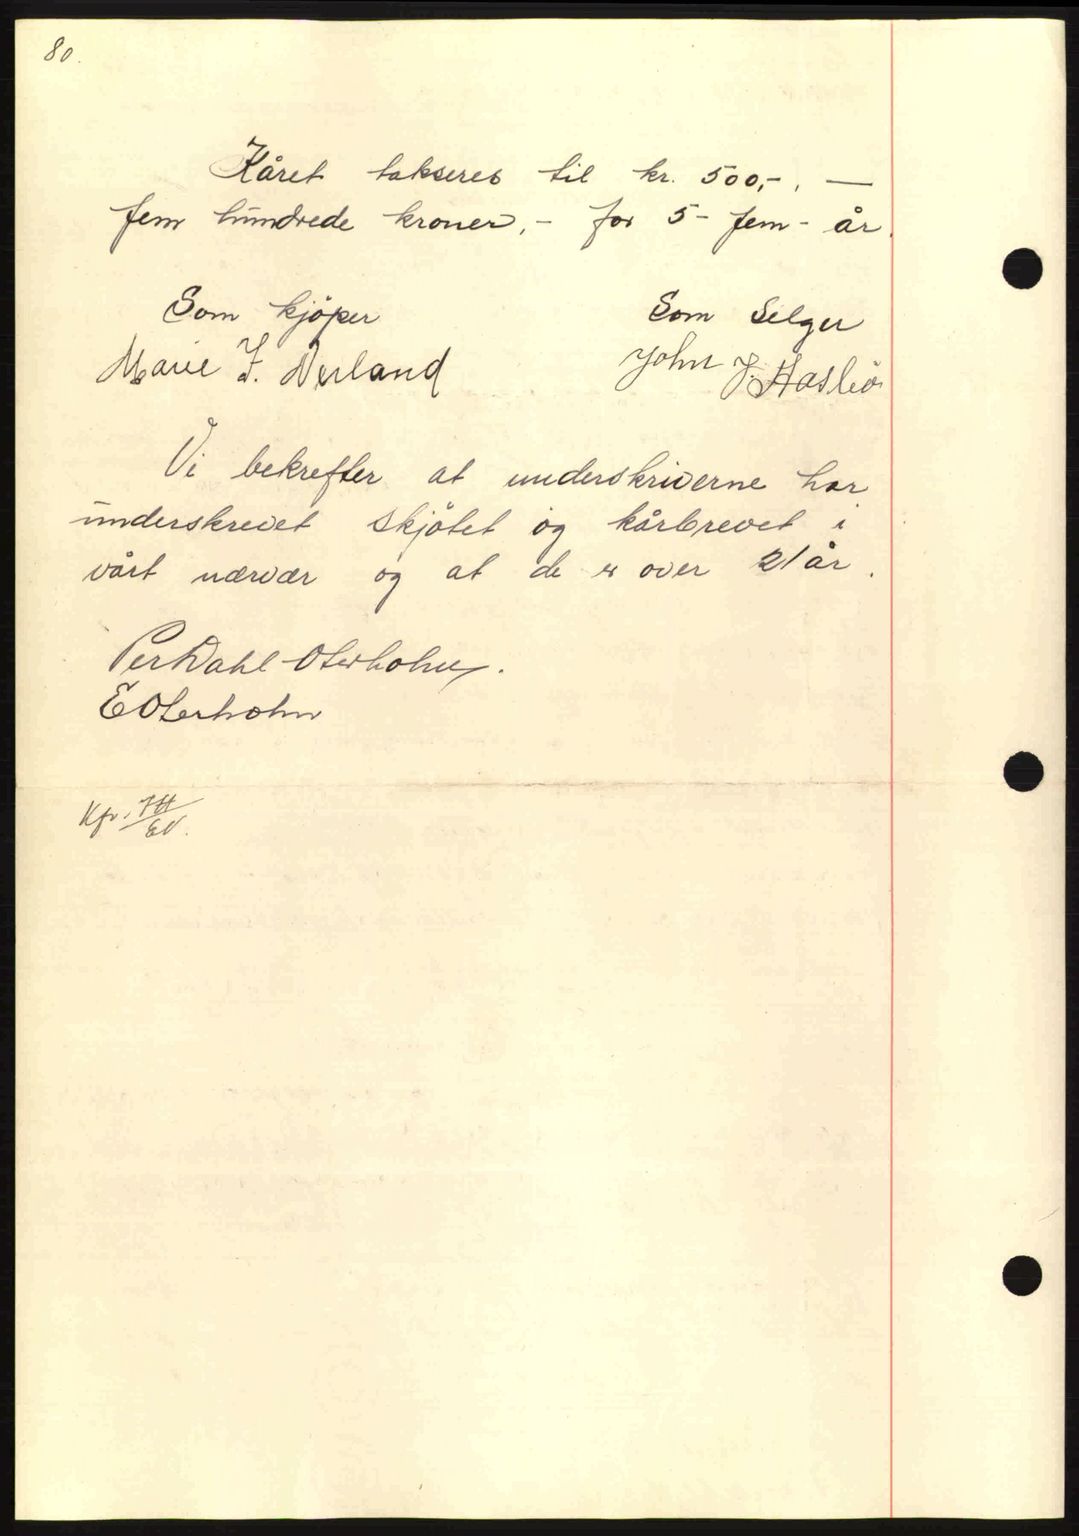 80.
Kåret takseres til kr. 500,-, —
fem hundrede kroner,- for 5- fem- år.
Som kjöper Som Selger
Marie J. Nerland John J. Hasleö
Vi bekrefter at underskriverne har
underskrevet skjötet og kårbrevet i
vårt nærvær og at de er over 21 år.
Per Dahl Oterholm.
E Oterholm
Kfr.